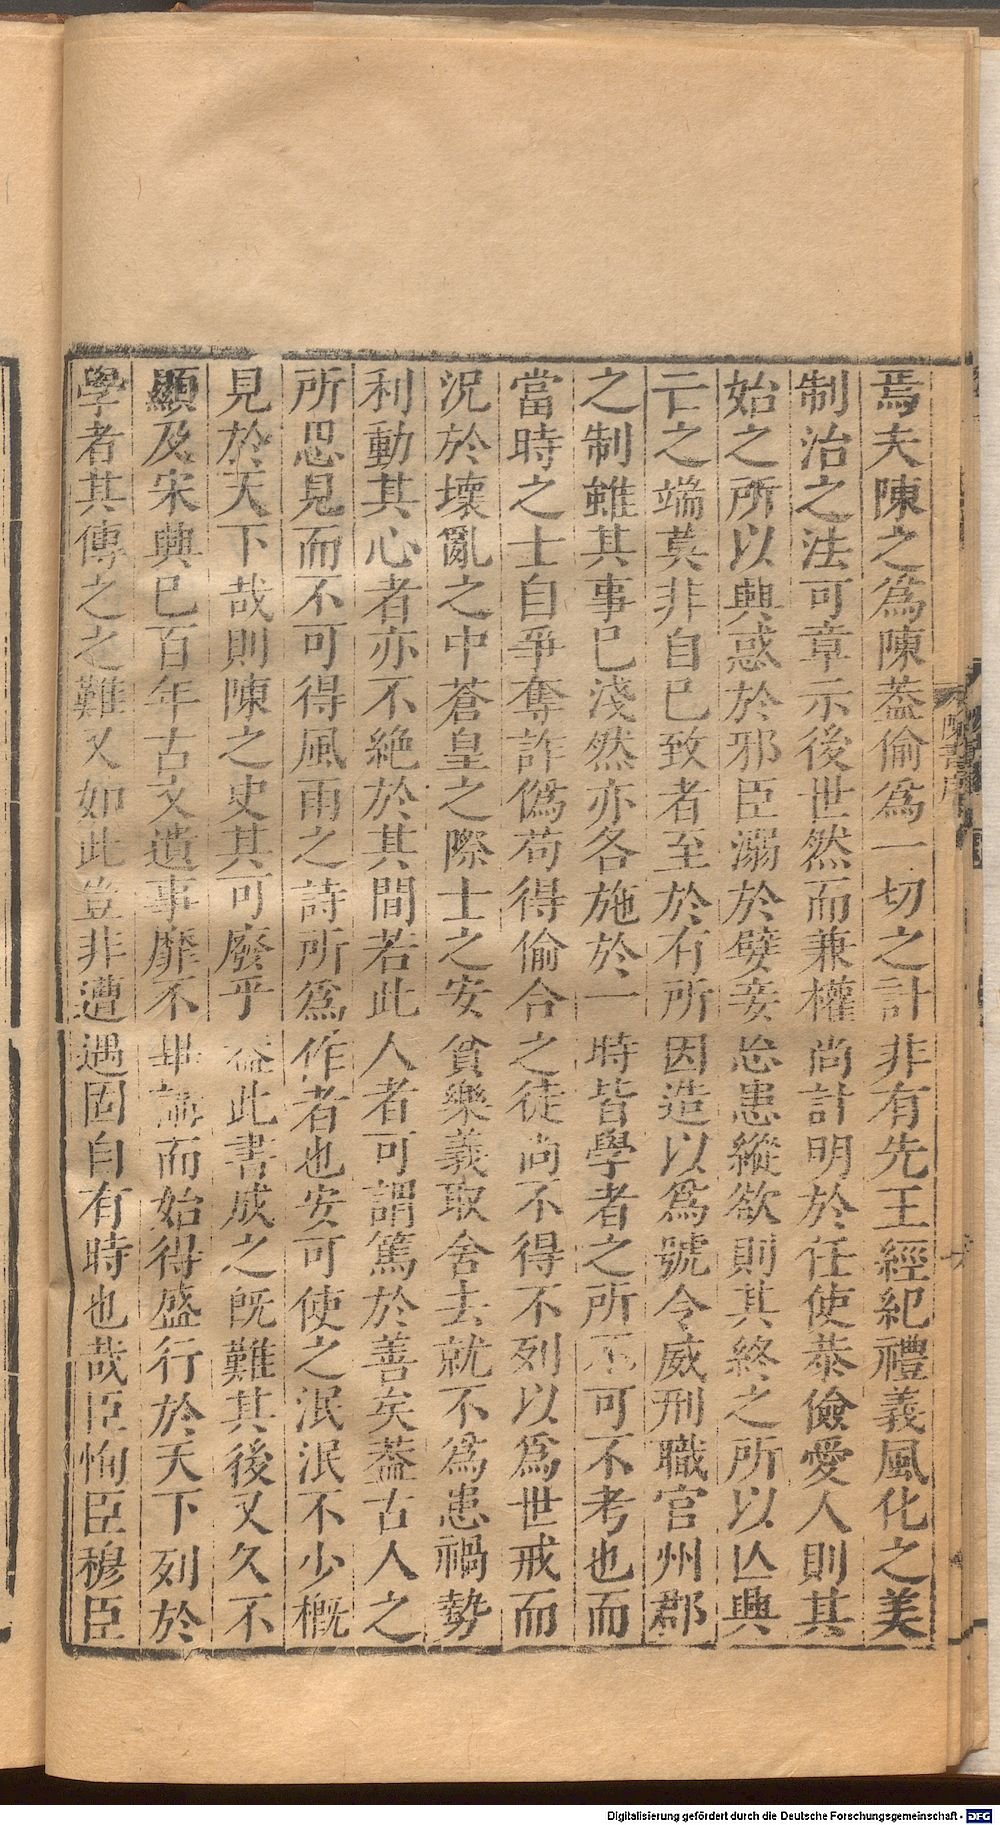 焉夫陳之為陳蓋偷為一切之計非有先王經紀禮義風化之美
制治之法可章示後世然而兼權尚計明於任使恭儉愛人則其
始之所以興惑於邪臣溺於嬖妾忘患縱欲則其終之所以亾興
亡之端莫非自己致者至於有所因造以為號令威刑職官州郡
之制雖其事已淺然亦各施於一時皆學者之所不可不考也而
當時之士自爭奪詐偽苟得偷合之徒尚不得不列以為世戒而
況於壞亂之中蒼皇之際士之安貧樂義取舍去就不為患禍勢
利動其心者亦不絶於其間若此人者可謂篤於善矣蓋古人之
所思見而不可得風雨之詩所為作者也安可使之泯泯不少概
見於天下哉則陳之史其可廢乎蓋此書成之旣難其後又久不
顯及宋興已百年古文遺事靡不畢講而始得盛行於天下列於
學者其傳之之難又如此豈非遭遇固自有時也哉臣恂臣穆臣
陳書序
Digitalisierung gefördert durch die Deutsche Forschungsgemeinschaft - DFG